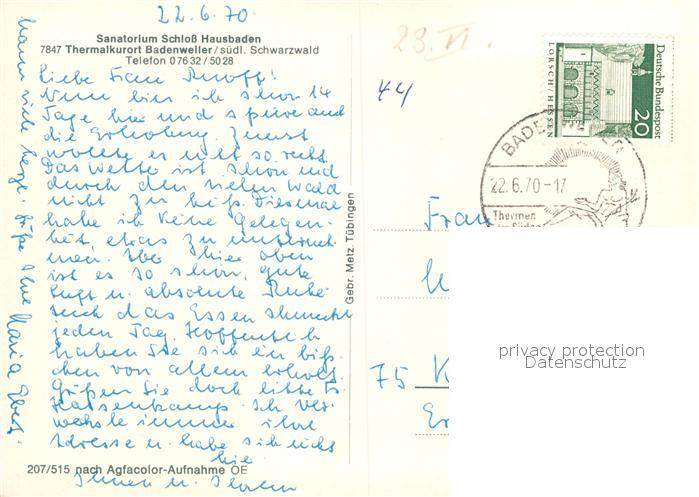 22.6.70.
Sanatorium Schloß Hausbaden
7847 Thermalkurort Badenweiler/südl. Schwarzwald
Telefon 07632/5028
Liebe Frau
Nun bin ich schon 14
Tage hier und spüre auch
die Erholung. Zuerst
wollte es nicht so recht.
Das Wetter ist schön und
durch den vielen Wald
nicht zu heiß. Diesmal
habe ich keine Gelegen-
heit, etwas zu unterneh-
men. Aber hier oben
ist es so schön, gute
Luft u. absolute Ruhe
auch das Essen schmeckt
jeden Tag. Hoffentlich
haben Sie sich ein biß-
chen von allem erholt.
Grüßen Sie doch bitte Fr.
Hassenkamp. Ich ver-
wechsle immer ihre
Adresse u. habe sie nicht
hier.
Ihnen u. Ihrem
Mann viele herzl. Grüße Ihre Maria
207/515 nach Agfacolor-Aufnahme OE
Gebr. Metz, Tübingen
23. VI.
44
Deutsche Bundespost
20
LORSCH/HESSEN
BADENWEILER
22.6.70-17
Thermen
im Süden
Frau
75 K
privacy protection
Datenschutz